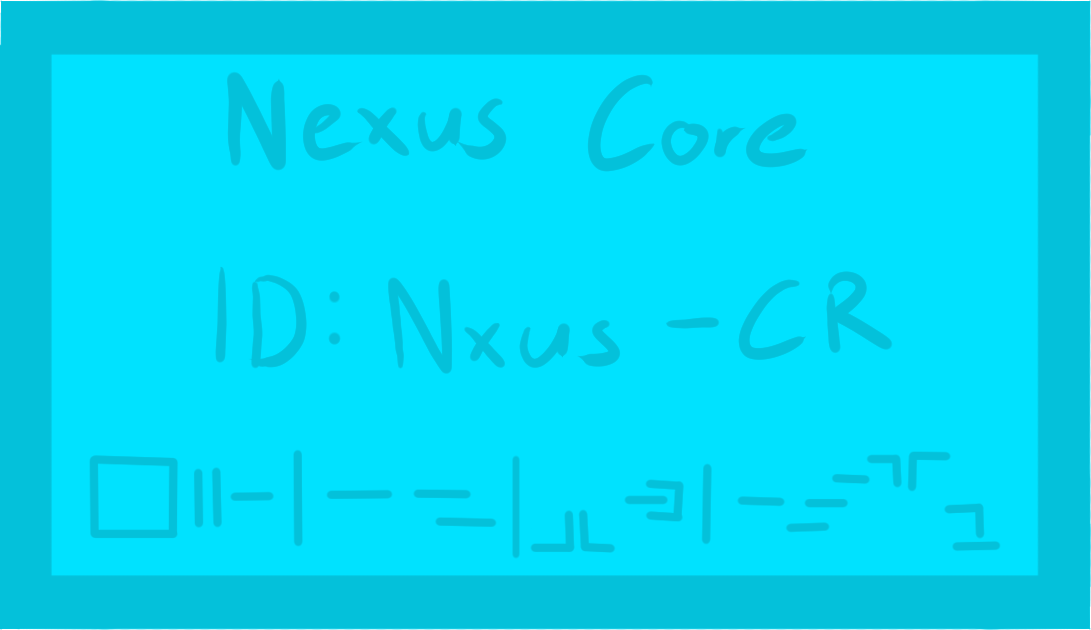 Nexus Core
ID: Nxus-CR